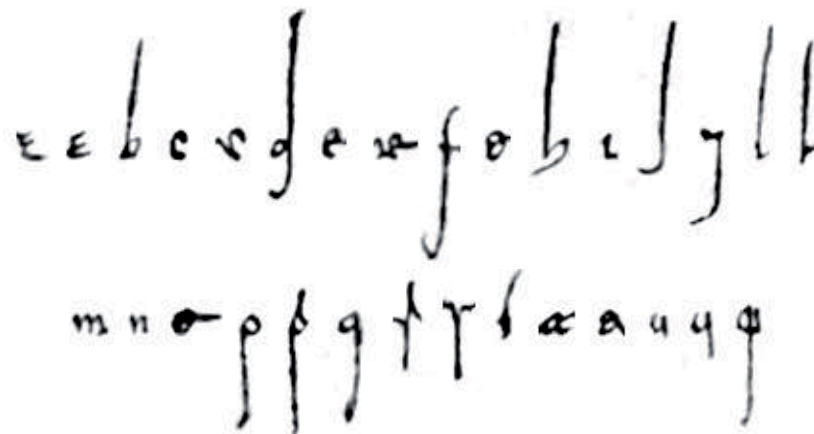 a a b c c d e e f g h i j j l l
m n o p p q r r s t t u u